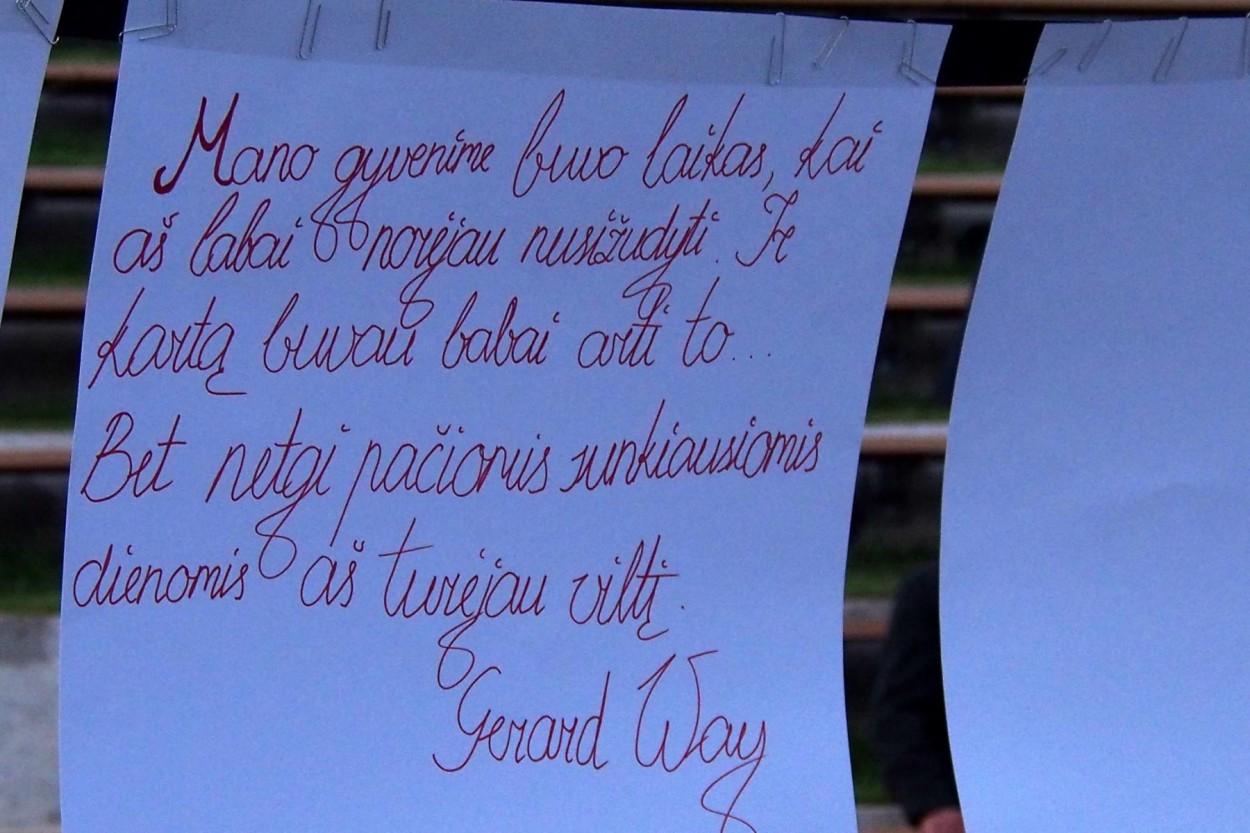 Mano gyvenime buvo laikas, kai
aš labai norėjau nusižudyti. Ir
kartą buvau babai arti to...
Bet netgi pačiomis sunkiausiomis
dienomis aš turėjau viltį.
Gerard Way